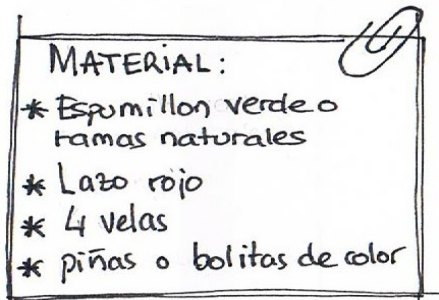 MATERIAL:
* Espumillon verde o
ramas naturales
* Lazo rojo
* 4 velas
* piñas o bolitas de color